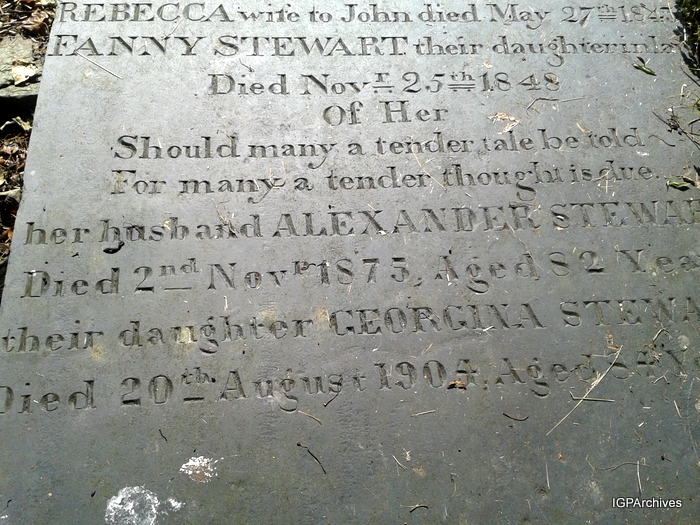 REBECCA wife to John died May 27th 184
FANNY STEWART their daughter in la
Died Novr 25th 1848
Of Her
Should many a tender tale be told
For many a tender thought is due.
her husband ALEXANDER STEWAR
Died 2nd Novr 1875, Aged 82 Yea
their daughter GEORGINA STEWA
Died 20th August 1904, Aged
IGPArchives